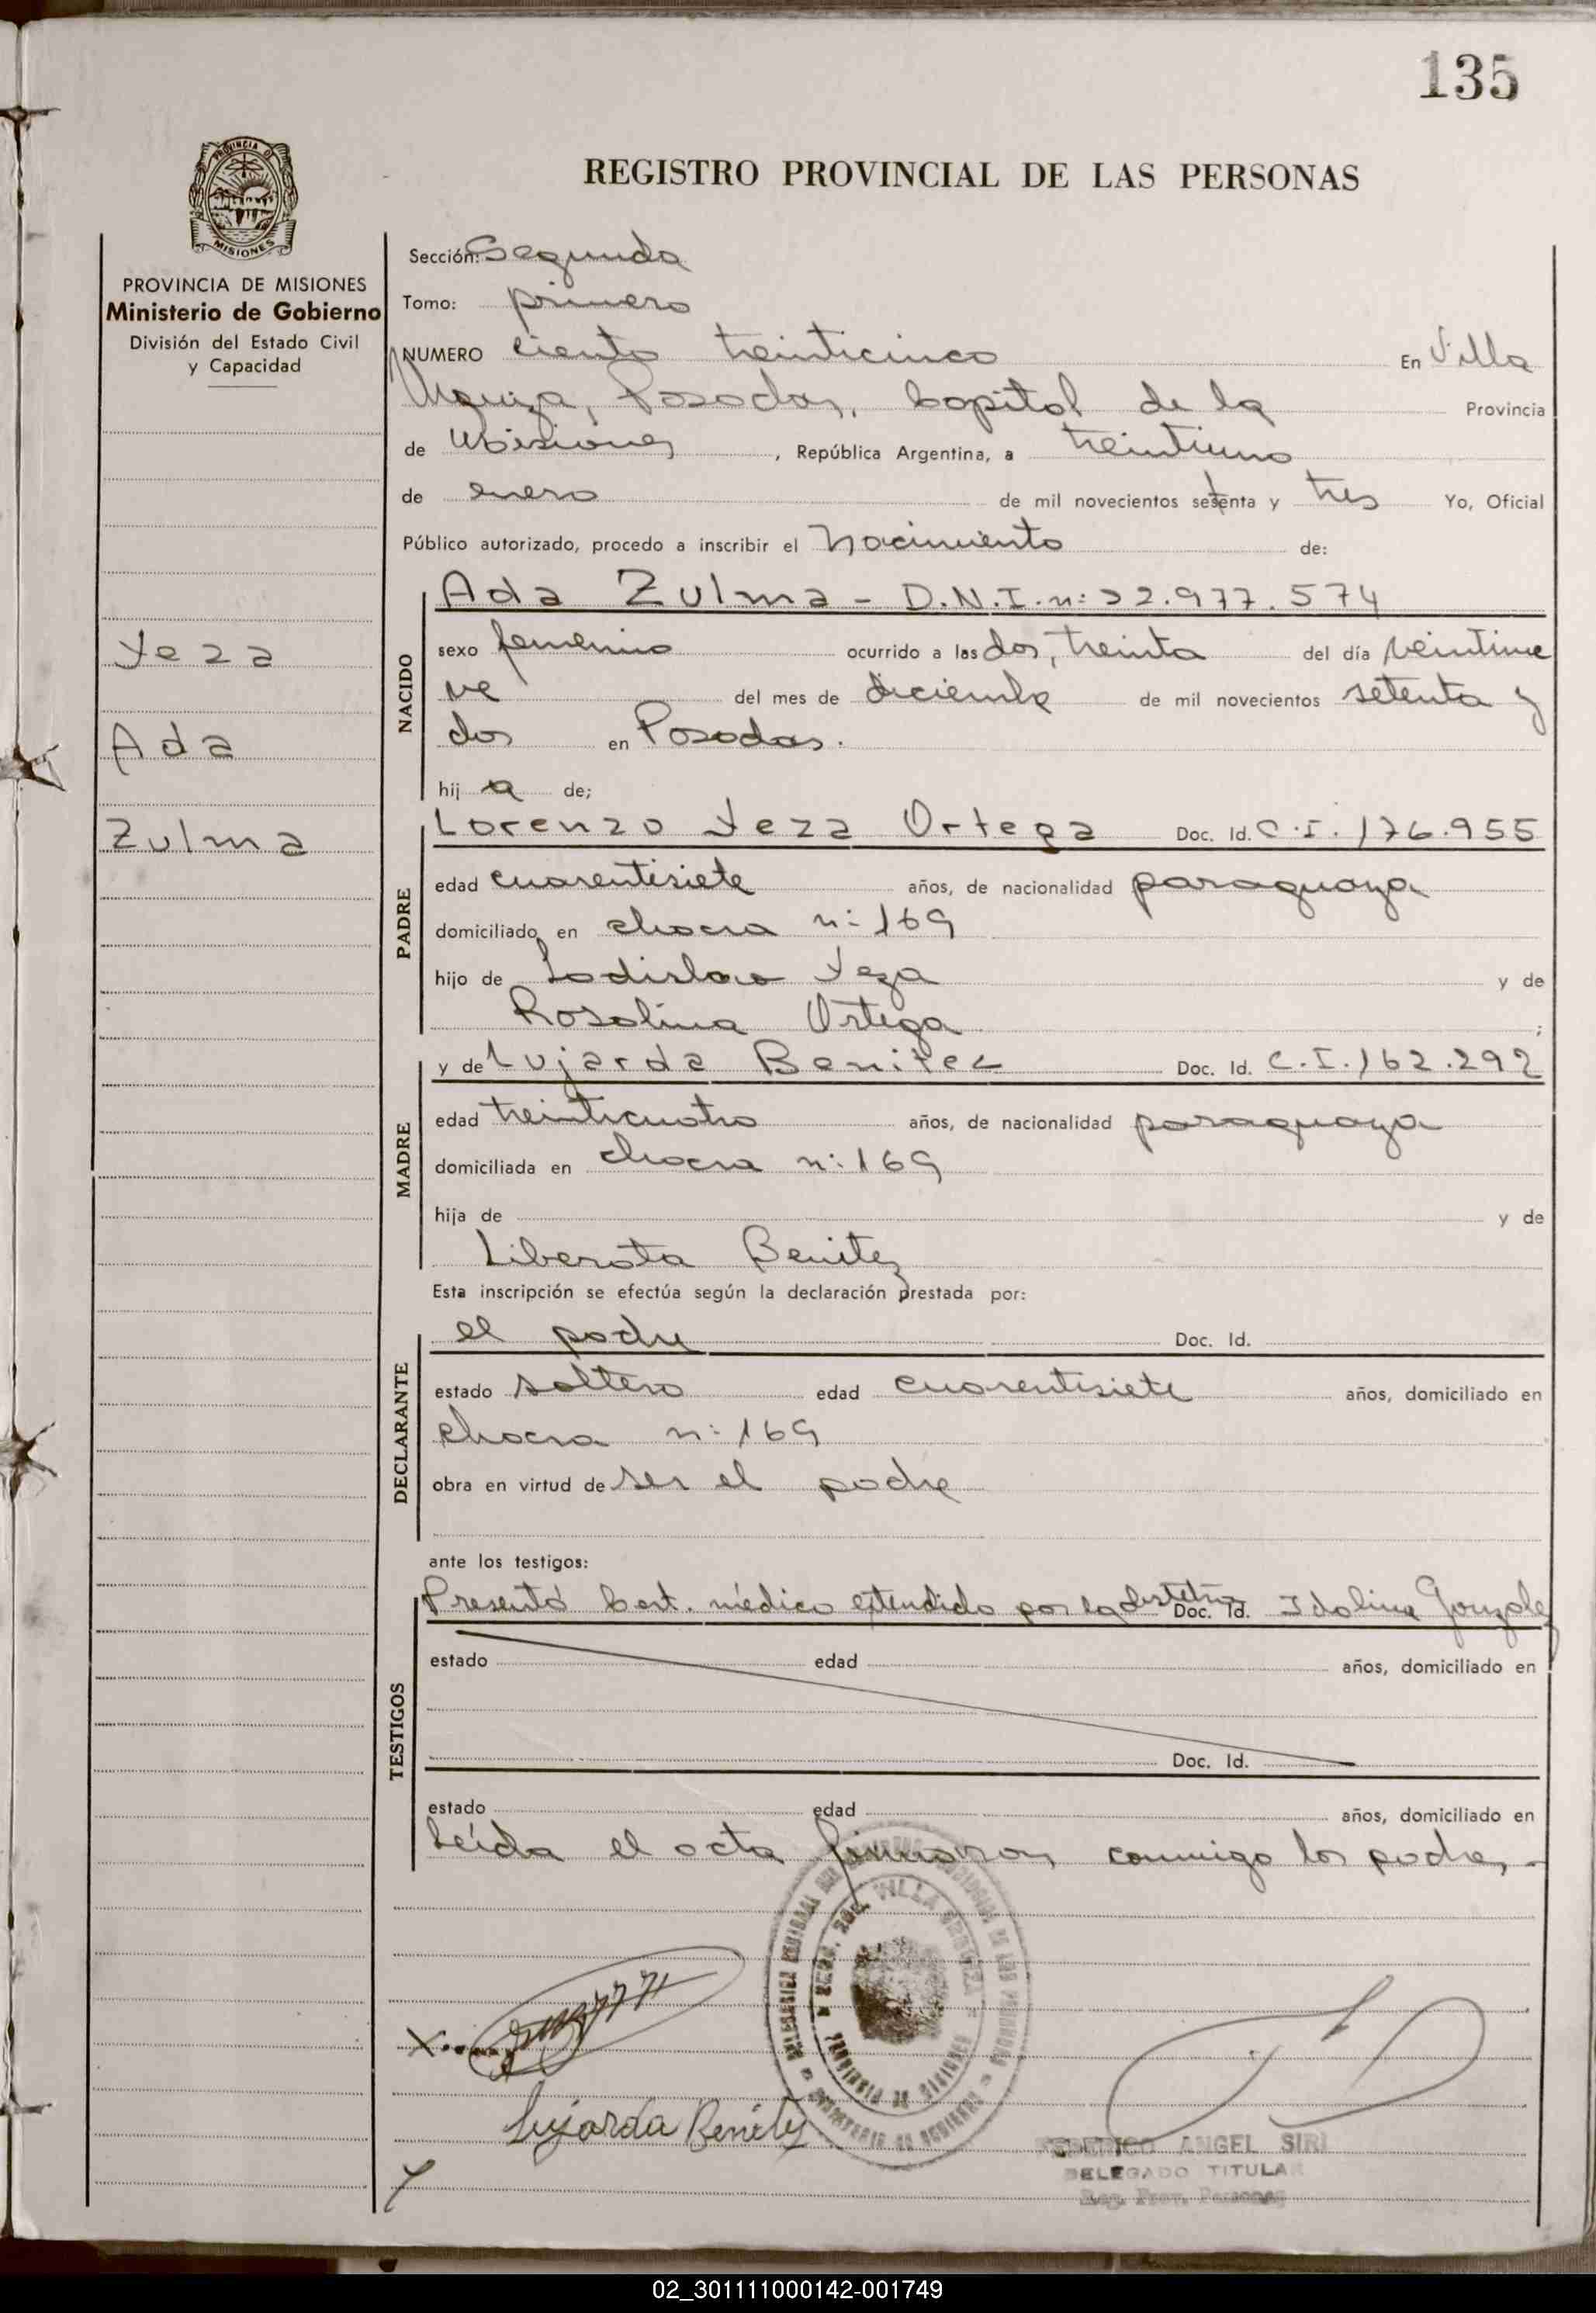 135
REGISTRO PROVINCIAL DE LAS PERSONAS
PROVINCIA DE
MISIONES
PROVINCIA DE MISIONES
Ministerio de Gobierno
División del Estado Civil
y Capacidad
Yeza
Ada
Zulma
Sección: Segunda
Tomo: primero
NUMERO ciento treinticinco En Villa
Urquiza, Posadas, Capital de la Provincia
de Misiones, República Argentina, a treintiuno
de enero de mil novecientos setenta y tres Yo, Oficial
Público autorizado, procedo a inscribir el Nacimiento de:
NACIDO
Ada Zulma - D.N.I. n: 22.977.574
sexo femenino ocurrido a las dos, treinta del día veintinue
ve del mes de diciembre de mil novecientos setenta y
dos en Posadas.
hij a de;
PADRE
Lorenzo Yeza Ortega Doc. Id. C.I. 176.955
edad cuarentisiete años, de nacionalidad paraguaya
domiciliado en chacra n: 169
hijo de Ladislao Yeza y de
Rosalina Ortega ;
MADRE
y de Lujarda Benitez Doc. Id. C.I. 162.292
edad treinticuatro años, de nacionalidad paraguaya
domiciliada en chacra n: 169
hija de y de
Liberata Benitez
Esta inscripción se efectúa según la declaración prestada por:
DECLARANTE
el padre Doc. Id.
estado soltero edad cuarentisiete años, domiciliado en
chacra n: 169
obra en virtud de ser el padre
ante los testigos:
TESTIGOS
Presentó Cert. médico extendido por la Doc. Id. Idalina Gonzalez
estado edad años, domiciliado en
Doc. Id.
estado edad años, domiciliado en
Leída el acta firmaron conmigo los padres -
VILLA URQUIZA
PROVINCIA DE MISIONES
MINISTERIO DE GOBIERNO
X
Lujarda Benitez
FEDERICO ANGEL SIRI
DELEGADO TITULAR
Reg. Prov. Personas
02_301111000142-001749